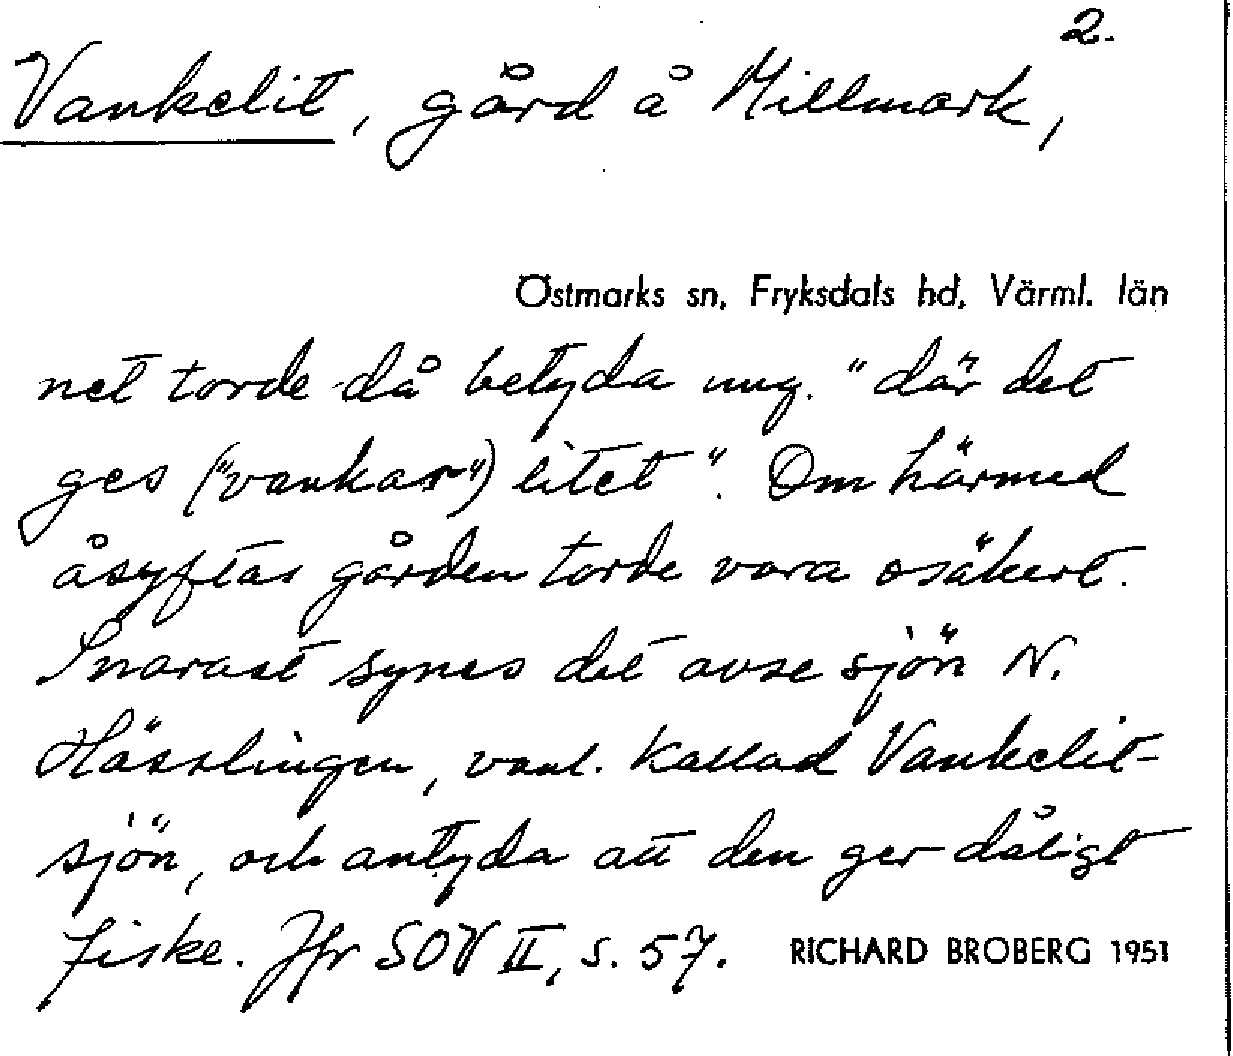 2.
Vankelit, gård å Millmark,
Östmarks sn, Fryksdals hd, Värml. län
net torde då betyda ung. "där det
ges ("vankar") litet". Om härmed
åsyftas gården torde vara osäkert.
Snarast synes det avse sjön N.
Hässlingen, vanl. kallad Vankelit-
sjön, och antyda att den ger dåligt
fiske. Jfr SOV II, s. 57.
RICHARD BROBERG 1951